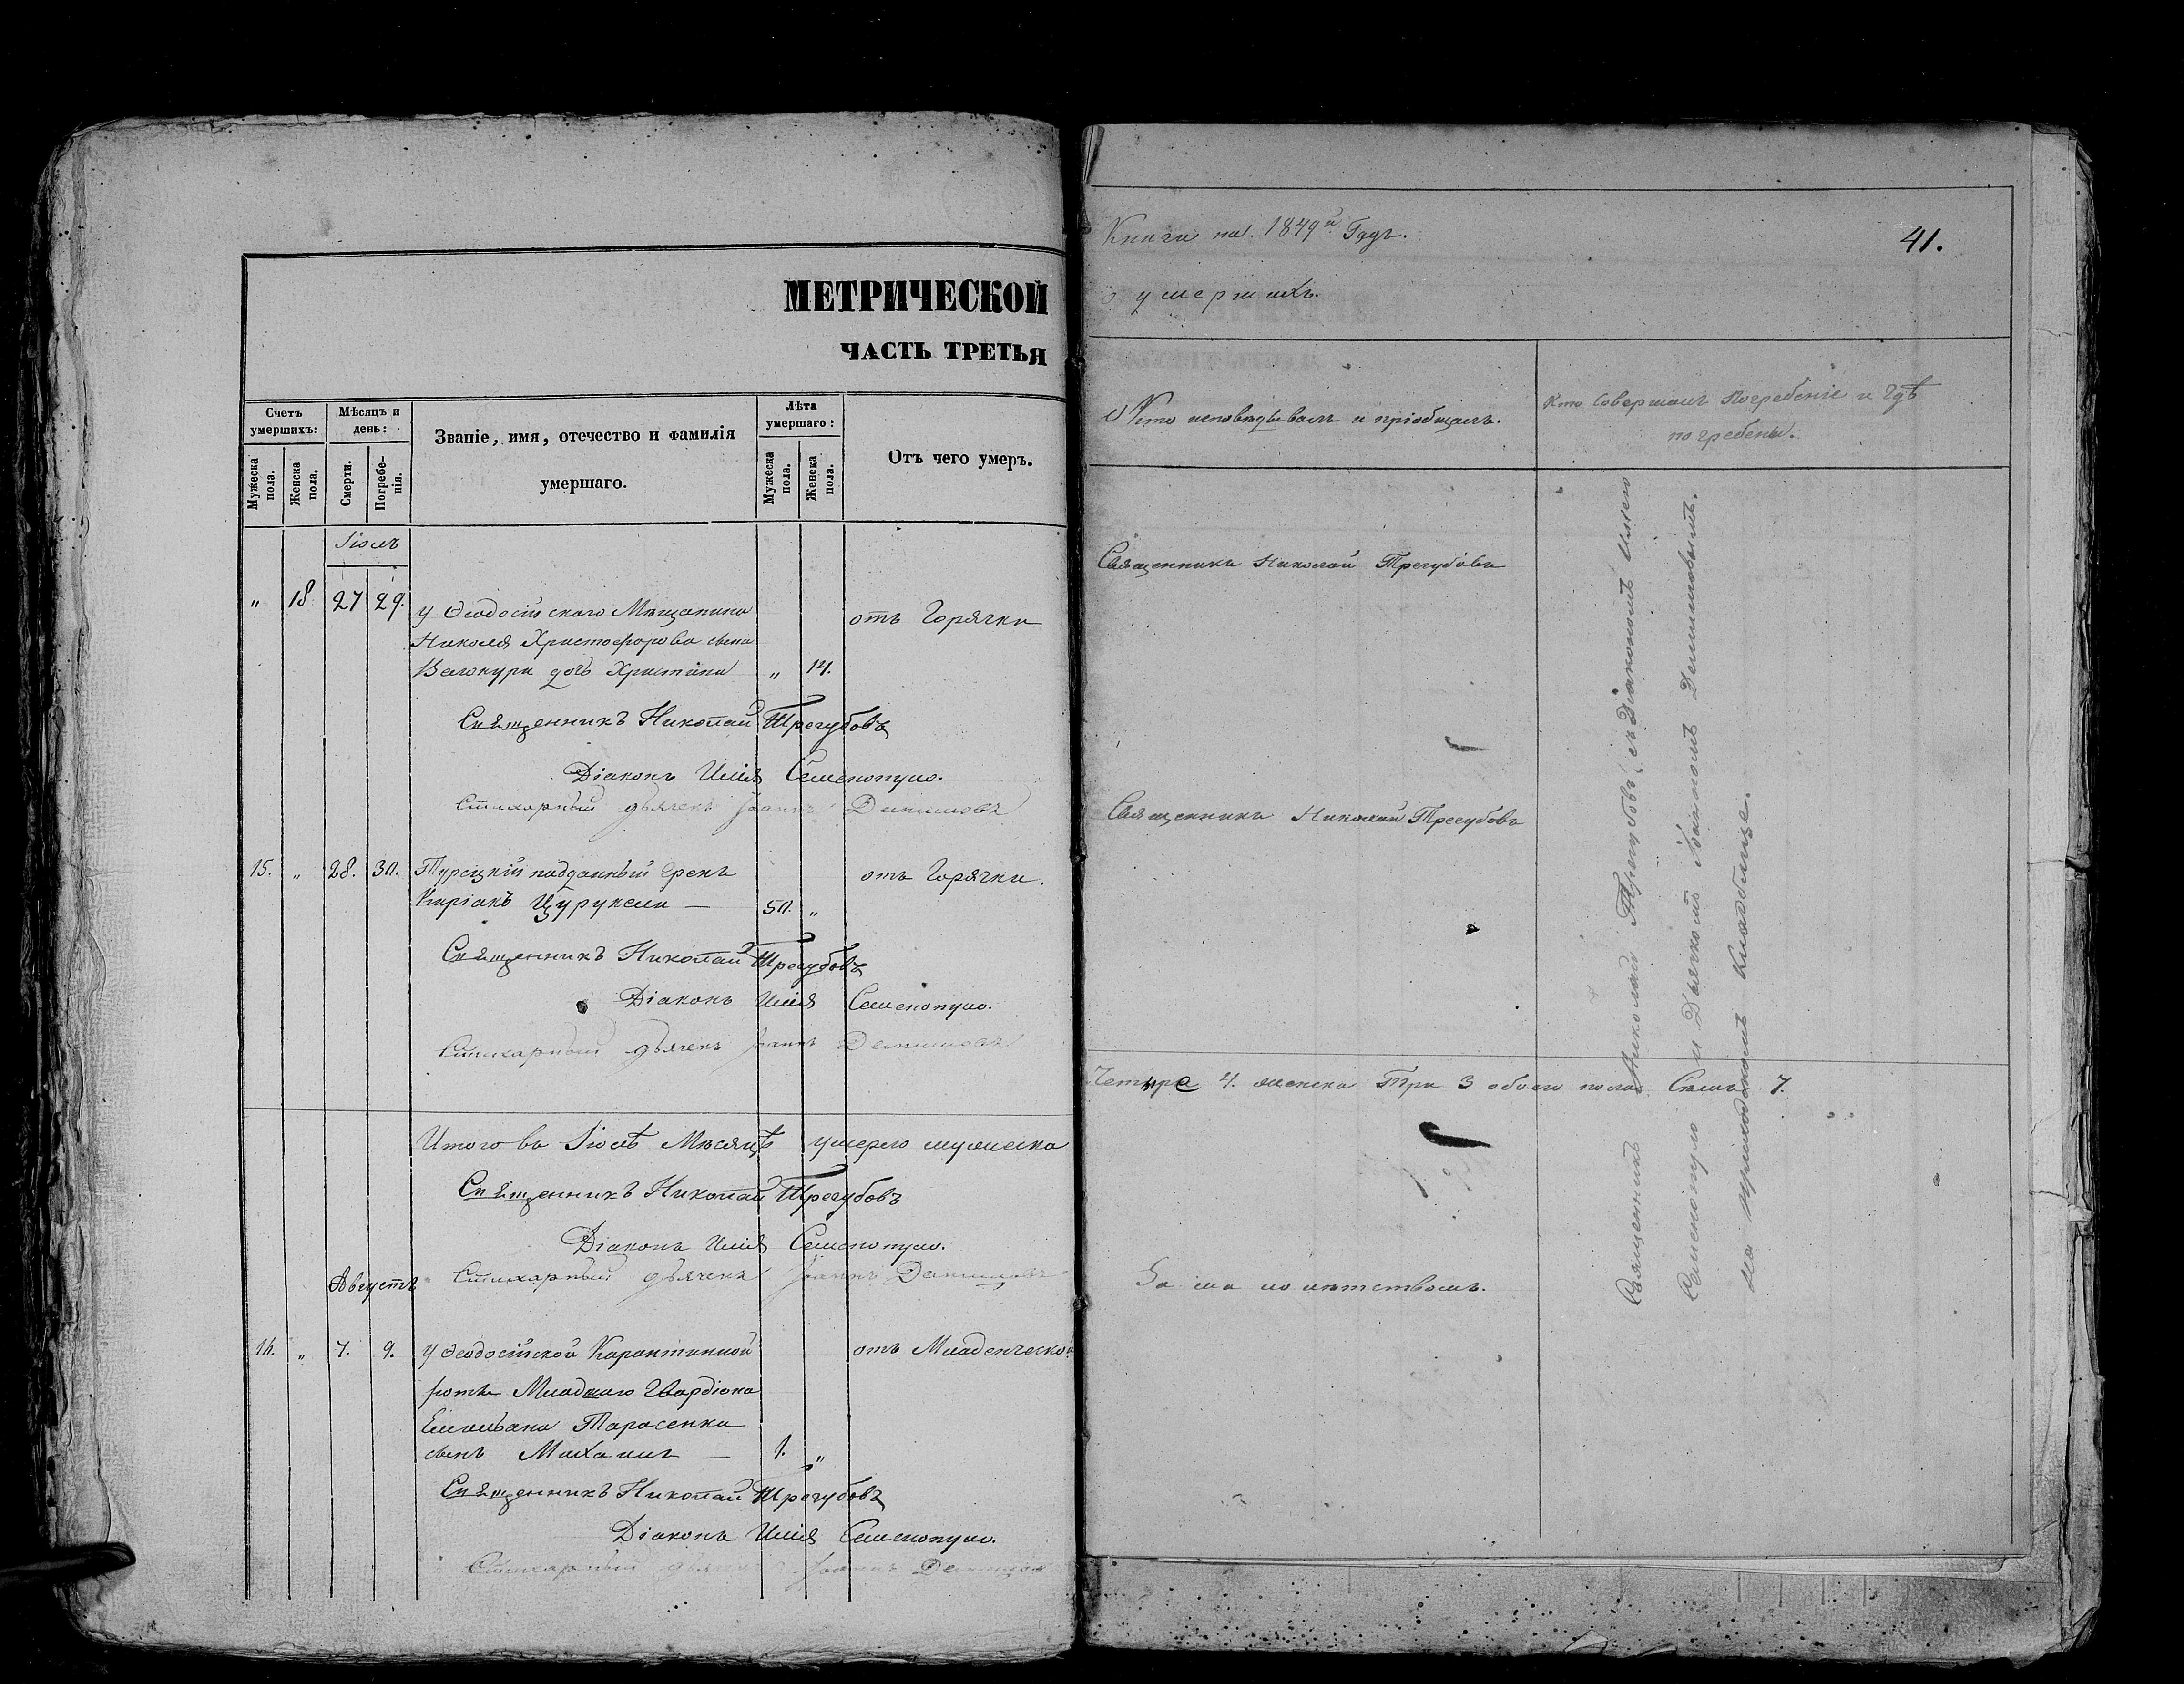 МЕТРИЧЕСКОЙ
ЧАСТЬ ТРЕТЬЯ
Счетъ умершихъ:
Мужеска пола.
Женска пола.
Мѣсяцъ и день:
Смерти.
Погребе-
нія.
Званіе, имя, отечество и фамилія
умершаго.
Лѣта умершаго:
Мужеска пола.
Женска пола.
Отъ чего умеръ.
Іюль
" 18 27 29. у Ѳеодосійскаго Мѣщанина отъ Горячки
Николая Христофорова сына
дочь Христина " 14.
Священникъ Николай Трегубовъ
Діаконъ Илія Семенопуло.
Стихарный дьячекъ Іоаннъ
15. " 28. 30. Турецкій подданный Грекъ отъ Горячки.
Киріакъ Цурукели — 50. "
Священникъ Николай Трегубовъ
Діаконъ Илія Семенопуло.
Стихарный дьячекъ Іоаннъ
Итого въ Іюлѣ Мѣсяцѣ умерло мужеска
Священникъ Николай Трегубовъ
Діаконъ Илія Семенопуло.
Августъ
Стихарный дьячекъ Іоаннъ
" 7. 9. у Ѳеодосійской Карантинной отъ Младенческой
роты Младшаго Гвардіона
Емельяна Тарасенка
сынъ Михаилъ — 1. "
Священникъ Николай Трегубовъ
Діаконъ Илія Семенопуло.
Стихарный дьячекъ Іоаннъ
Книги на 1849й Годъ. 41.
о умершихъ.
Кто исповѣдывалъ и пріобщалъ.
Кто Совершалъ Погребеніе и Гдѣ
погребены.
Священникъ Николай Трегубовъ
Священникъ Николай Трегубовъ
Четыре 4. женска Три 3 обоего пола Семь 7.
За малолѣтствомъ.
Священникъ Николай Трегубовъ съ Діакономъ Иліею
Семенопуло и Дьячкомъ Іоанномъ
на приходскомъ Кладбище.